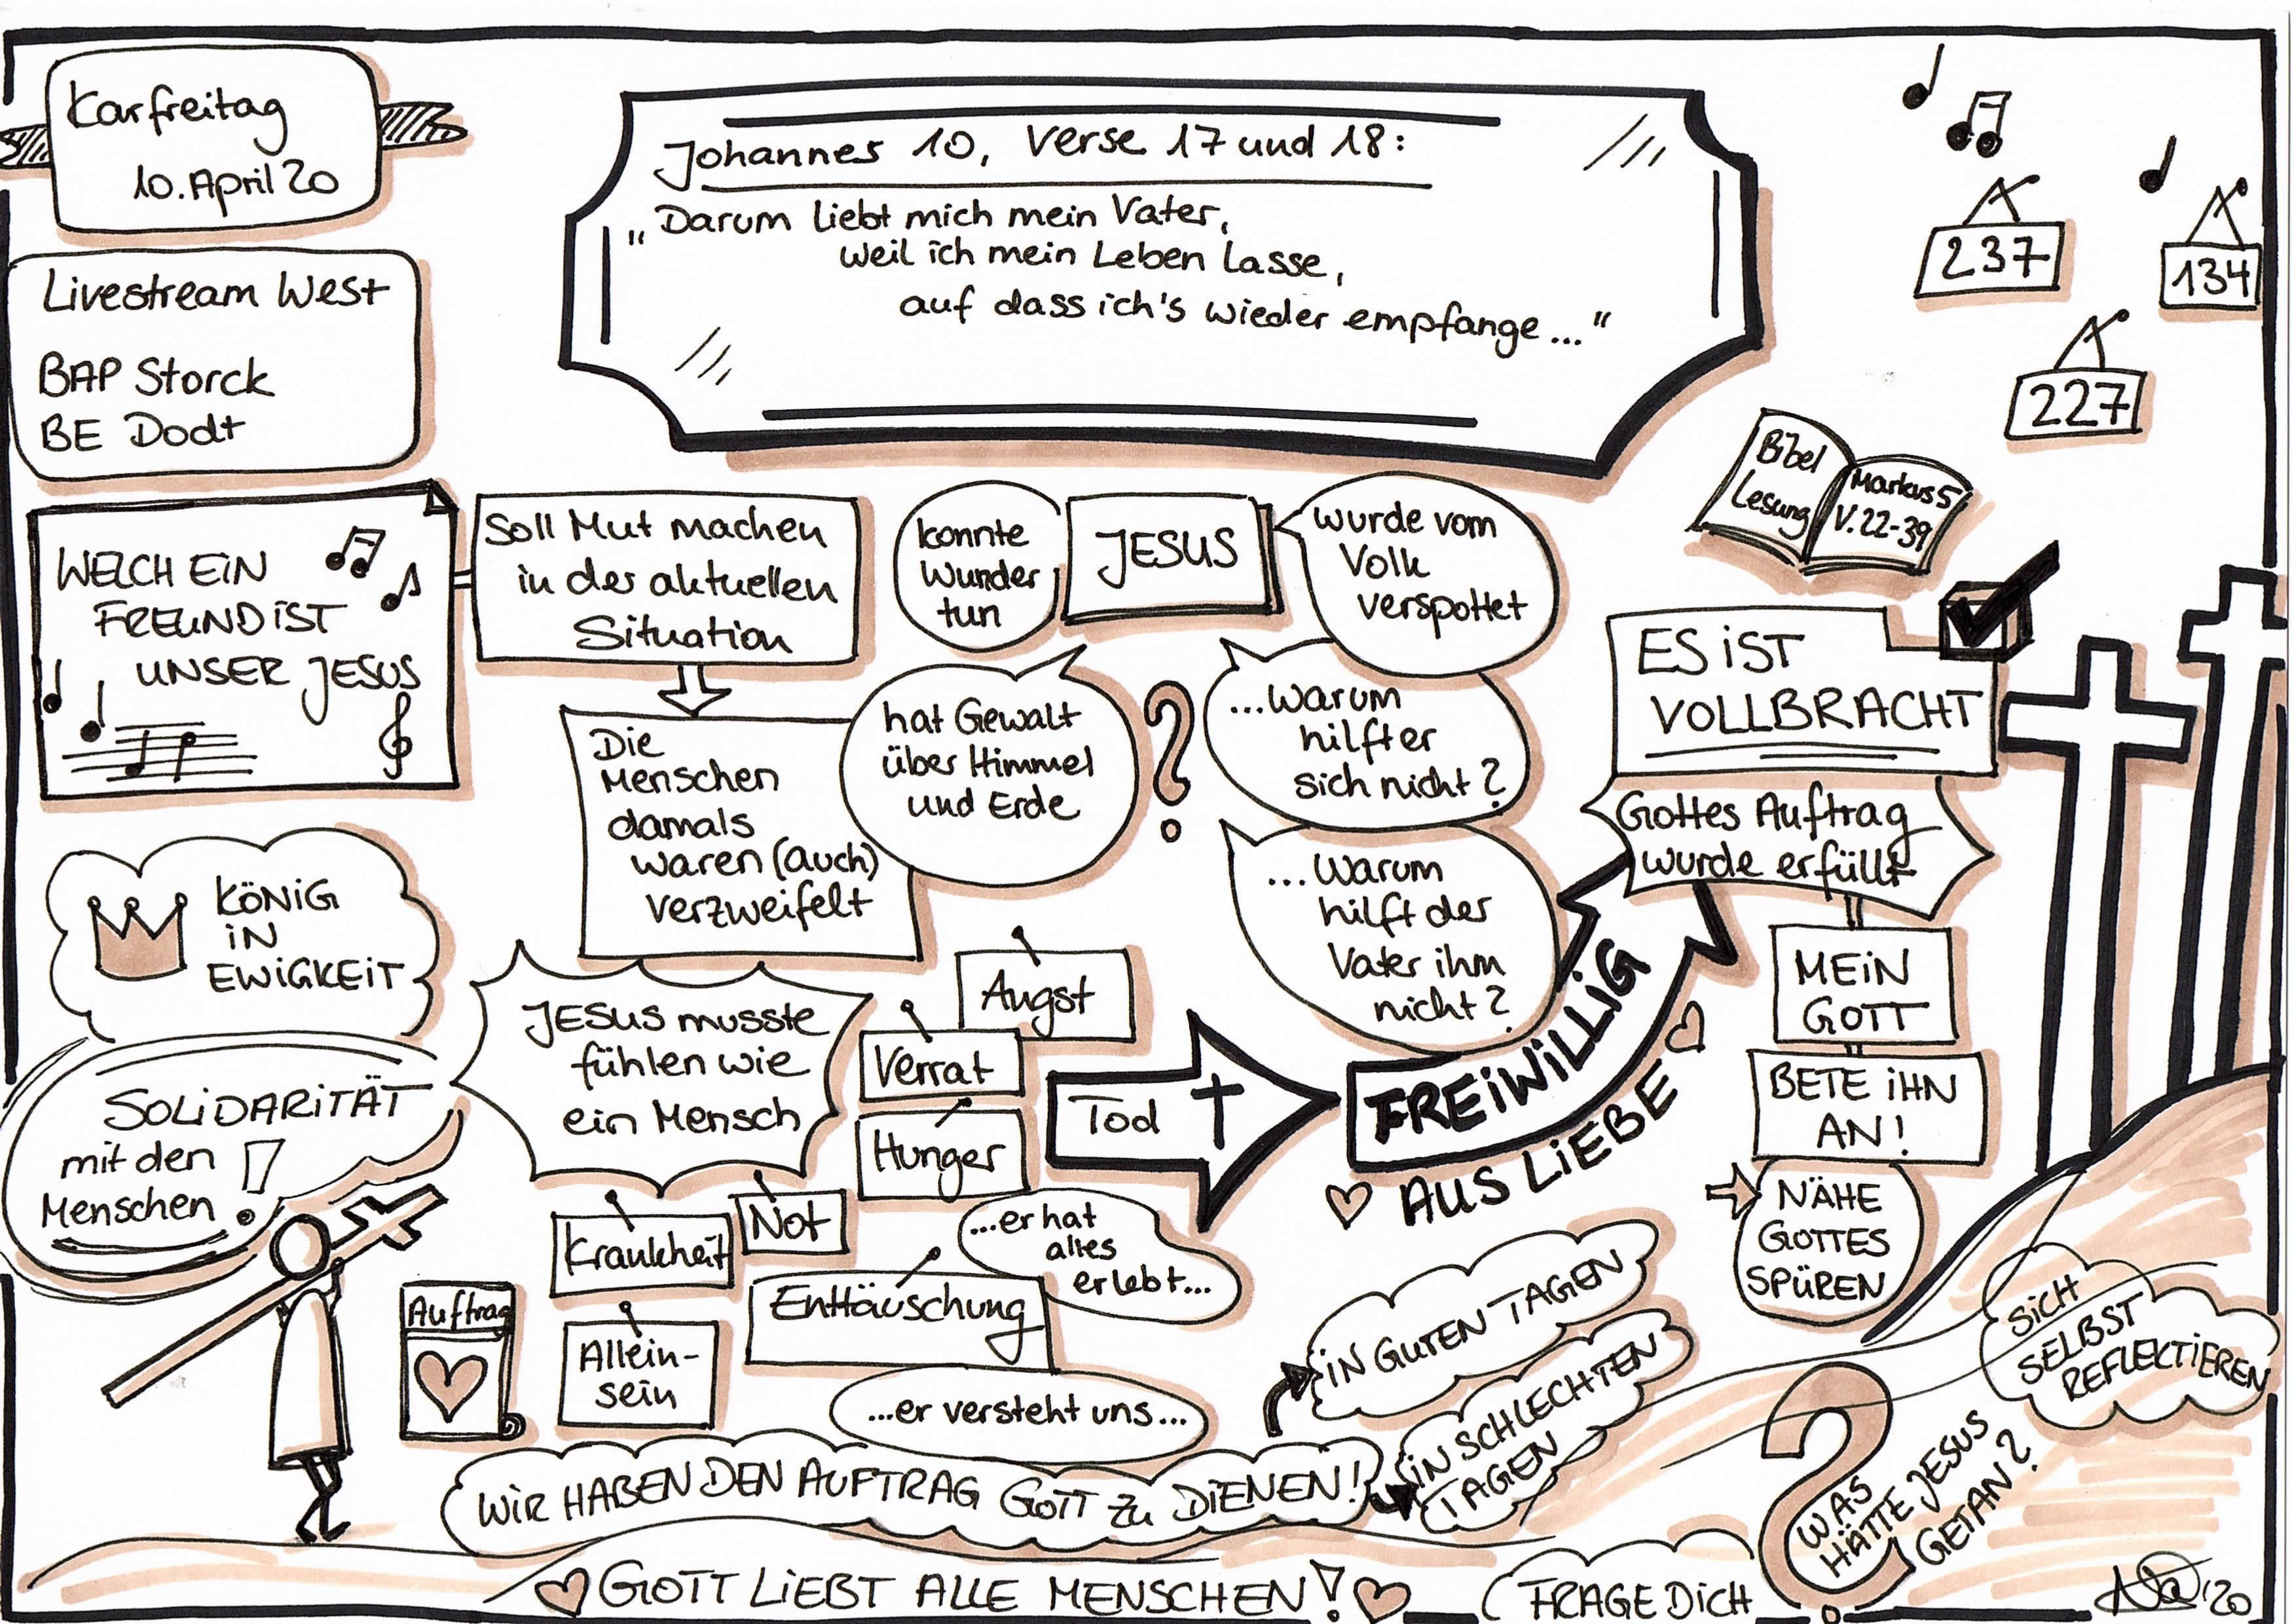 Karfreitag
10. April 20
Livestream West
BAP Storck
BE Dodt
Johannes 10, Verse 17 und 18:
„Darum liebt mich mein Vater,
weil ich mein Leben lasse,
auf dass ich's wieder empfange..."
237
134
227
Bibel
Lesung
Markus 5
V. 22-39
WELCH EIN
FREUND IST
UNSER JESUS
Soll Mut machen
in der aktuellen
Situation
konnte
Wunder
tun
JESUS
wurde vom
Volk
verspottet
hat Gewalt
über Himmel
und Erde
?
...warum
hilft er
sich nicht?
...warum
hilft der
Vater ihm
nicht?
ES IST
VOLLBRACHT
Gottes Auftrag
wurde erfüllt
MEIN
GOTT
BETE IHN
AN!
NÄHE
GOTTES
SPÜREN
Die
Menschen
damals
waren (auch)
verzweifelt
KÖNIG
IN
EWIGKEIT
SOLIDARITÄT
mit den
Menschen!
JESUS musste
fühlen wie
ein Mensch
Angst
Verrat
Hunger
Not
Krankheit
Enttäuschung
Allein-
sein
Tod
FREIWILLIG
AUS LIEBE
...er hat
alles
erlebt...
...er versteht uns...
Auftrag
WIR HABEN DEN AUFTRAG GOTT ZU DIENEN!
IN GUTEN TAGEN
IN SCHLECHTEN
TAGEN
GOTT LIEBT ALLE MENSCHEN!
FRAGE DICH
?
WAS
HÄTTE JESUS
GETAN?
SICH
SELBST
REFLEKTIEREN
'20